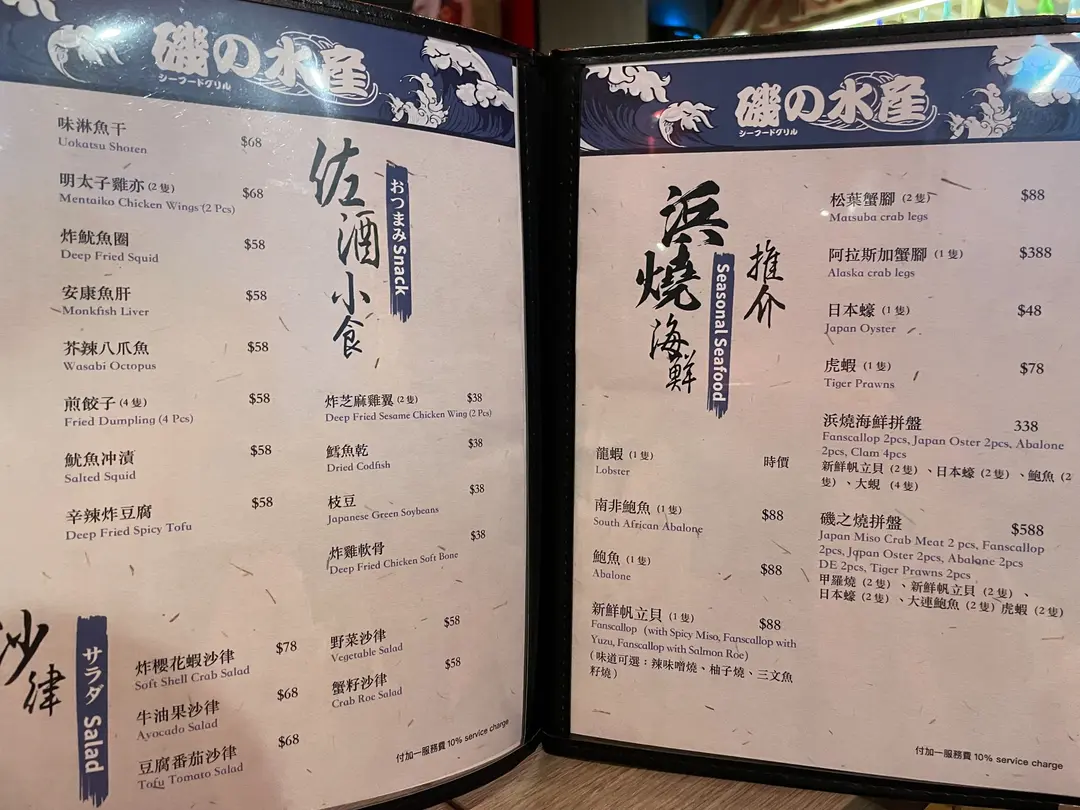 磯の水産
シーフードグリル
味淋魚干 $68
Uokatsu Shoten
明太子雞亦 (2 隻) $68
Mentaiko Chicken Wings (2 Pcs)
炸魷魚圈 $58
Deep Fried Squid
安康魚肝 $58
Monkfish Liver
芥辣八爪魚 $58
Wasabi Octopus
煎餃子 (4 隻) $58
Fried Dumpling (4 Pcs)
魷魚冲漬 $58
Salted Squid
辛辣炸豆腐 $58
Deep Fried Spicy Tofu
佐酒小食
おつまみ Snack
炸芝麻雞翼 (2 隻) $38
Deep Fried Sesame Chicken Wing (2 Pcs)
鱈魚乾 $38
Dried Codfish
枝豆 $38
Japanese Green Soybeans
炸雞軟骨 $38
Deep Fried Chicken Soft Bone
沙律
サラダ Salad
炸櫻花蝦沙律 $78
Soft Shell Crab Salad
牛油果沙律 $68
Avocado Salad
豆腐番茄沙律 $68
Tofu Tomato Salad
野菜沙律 $58
Vegetable Salad
蟹籽沙律 $58
Crab Roe Salad
付加一服務費 10% service charge
磯の水産
シーフードグリル
浜燒海鮮
Seasonal Seafood
推介
龍蝦 (1 隻) 時價
Lobster
南非鮑魚 (1 隻) $88
South African Abalone
鮑魚 (1 隻) $88
Abalone
新鮮帆立貝 (1 隻) $88
Fanscallop (with Spicy Miso, Fanscallop with
Yuzu, Fanscallop with Salmon Roe)
(味道可選：辣味噌燒、柚子燒、三文魚
籽燒)
松葉蟹腳 (2 隻) $88
Matsuba crab legs
阿拉斯加蟹腳 (1 隻) $388
Alaska crab legs
日本蠔 (1 隻) $48
Japan Oyster
虎蝦 (1 隻) $78
Tiger Prawns
浜燒海鮮拼盤 338
Fanscallop 2pcs, Japan Oster 2pcs, Abalone
2pcs, Clam 4pcs
新鮮帆立貝 (2 隻) 、日本蠔 (2 隻) 、鮑魚 (2
隻) 、大蜆 (4 隻)
磯之燒拼盤 $588
Japan Miso Crab Meat 2 pcs, Fanscallop
2pcs, Japan Oster 2pcs, Abalone 2pcs
DE 2pcs, Tiger Prawns 2pcs
甲羅燒 (2 隻) 、新鮮帆立貝 (2 隻) 、
日本蠔 (2 隻) 、大連鮑魚 (2 隻) 虎蝦 (2 隻)
付加一服務費 10% service charge